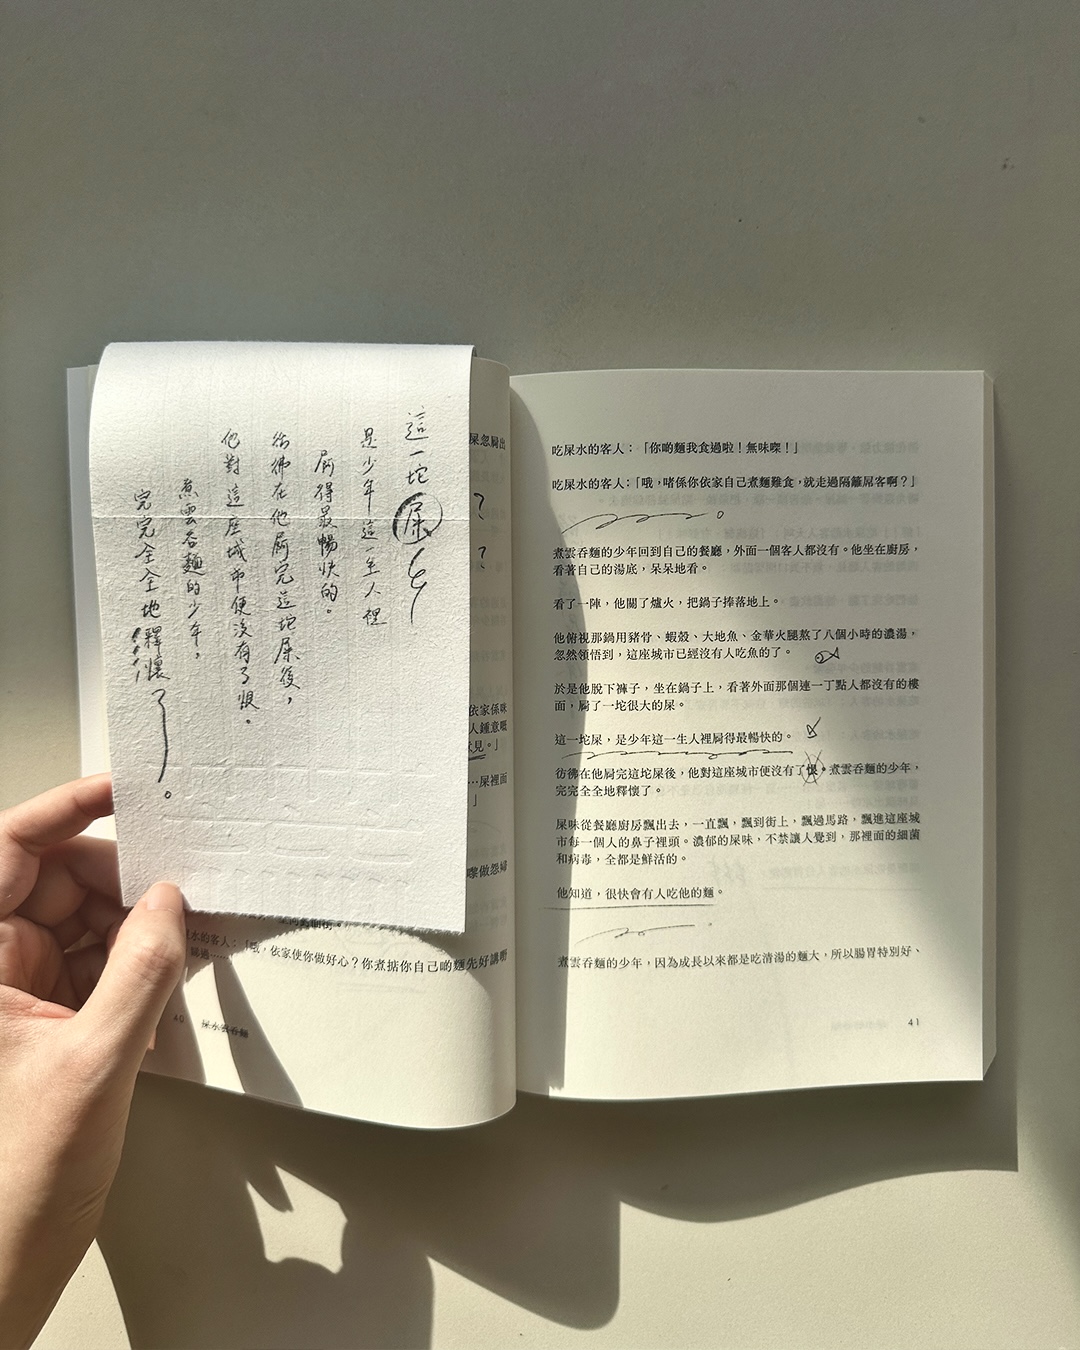 這一坨屎
是少年這一生人裡
屙得最暢快的。
彷彿在他屙完這坨屎後,
他對這座城市便沒有了恨。
煮雲吞麵的少年,
完完全全地釋懷了。
屎忽屙出
?
?
依家係咪
人鍾意嘅
意見。」
…屎裡面
」
嚟做怨婦
水的客人:「哦,依家使你做好心?你煮掂你自己啲麵先好講嘢
40 屎水雲吞麵
吃屎水的客人:「你啲麵我食過啦!無味㗎!」
吃屎水的客人:「哦,啫係你依家自己煮麵難食,就走過隔籬屌客啊?」
煮雲吞麵的少年回到自己的餐廳,外面一個客人都沒有。他坐在廚房,
看著自己的湯底,呆呆地看。
看了一陣,他關了爐火,把鍋子捧落地上。
他俯視那鍋用豬骨、蝦殼、大地魚、金華火腿熬了八個小時的濃湯,
忽然領悟到,這座城市已經沒有人吃魚的了。
於是他脫下褲子,坐在鍋子上,看著外面那個連一丁點人都沒有的樓
面,屙了一坨很大的屎。
這一坨屎,是少年這一生人裡屙得最暢快的。
彷彿在他屙完這坨屎後,他對這座城市便沒有了恨。煮雲吞麵的少年,
完完全全地釋懷了。
屎味從餐廳廚房飄出去,一直飄,飄到街上,飄過馬路,飄進這座城
市每一個人的鼻子裡頭。濃郁的屎味,不禁讓人覺到,那裡面的細菌
和病毒,全都是鮮活的。
他知道,很快會有人吃他的麵。
煮雲吞麵的少年,因為成長以來都是吃清湯的麵大,所以腸胃特別好、
41